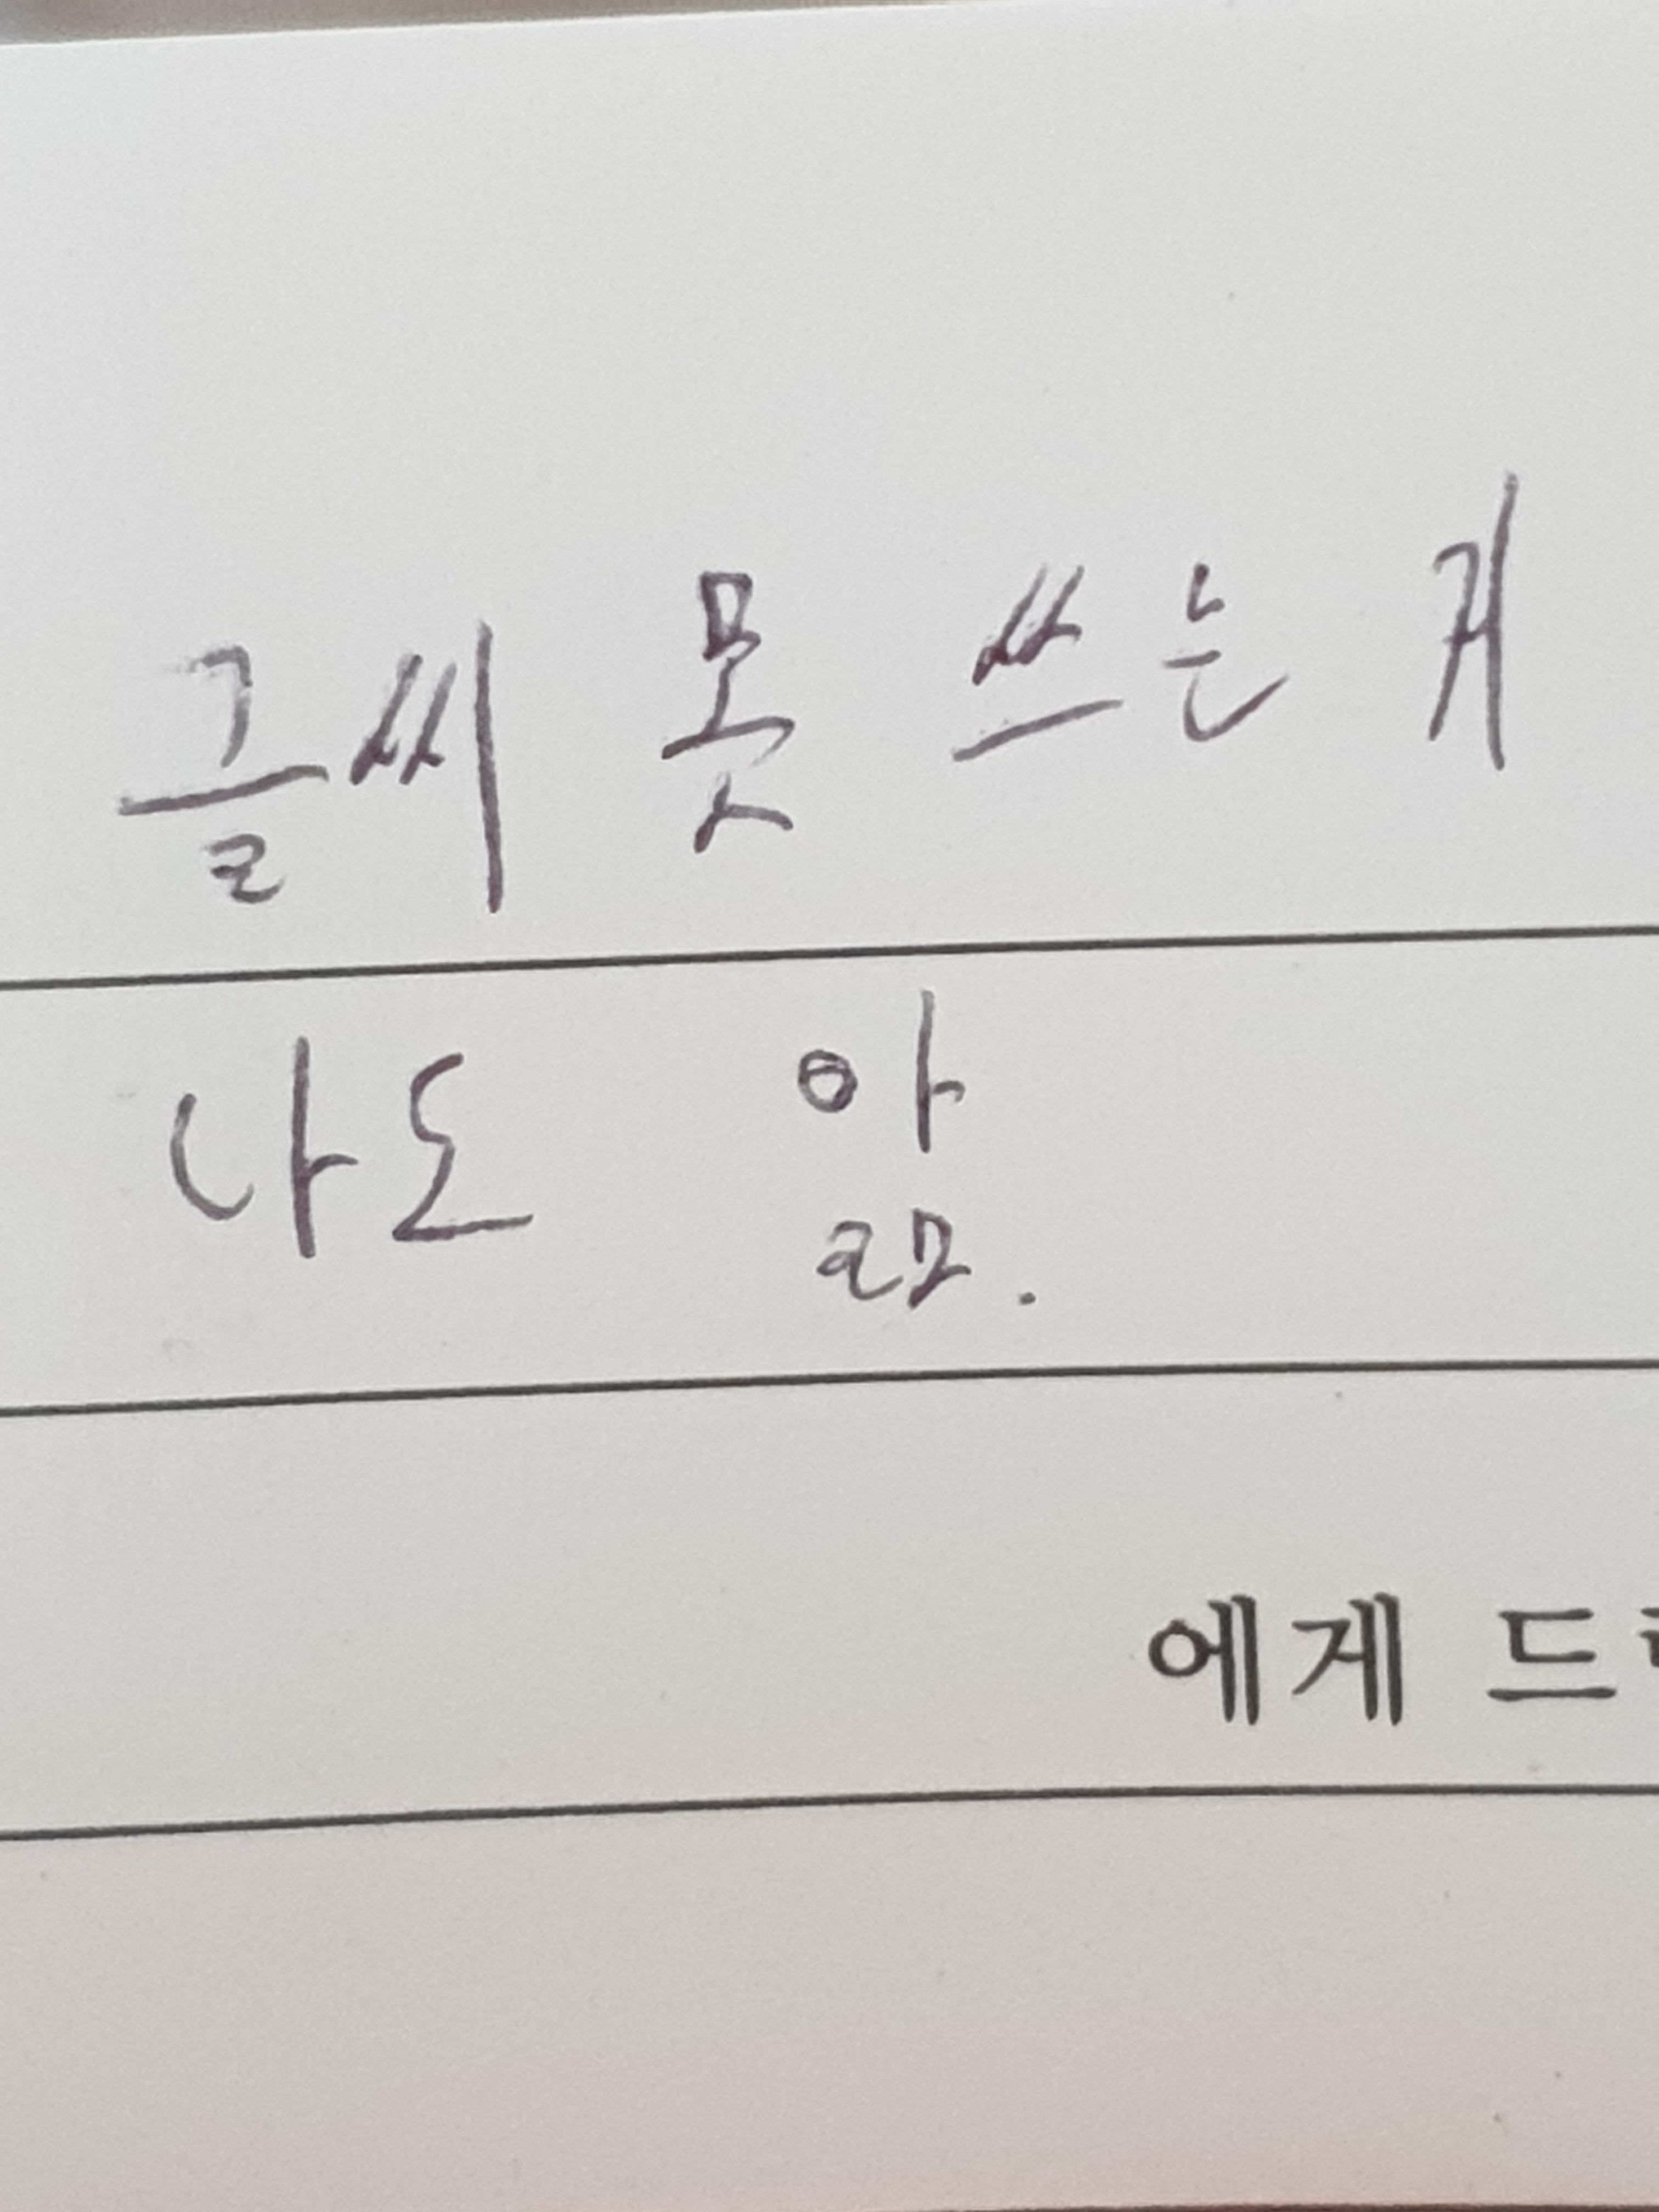 글씨 못 쓰는 거
나도 앎.
에게 드